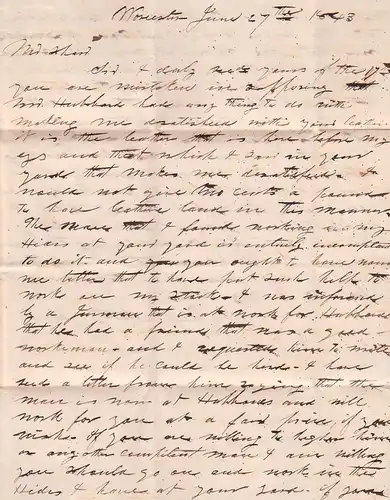 Worcester June 27th 1843
Sir I duly rec'd yours of the 17th
you are mistaken in supposing that
Mr Hubbard had any thing to do with
making me disatisfied with your leather
it is the leather that is here before my
eyes and that which I saw in your
yards that makes me disatisfied. I
would not give two cents a pound
to have leather tand in this manner
The man that I found working in my
Hides at your yard is entirely incompetent
to do it and you ought to have known
me better that to have put such help to
work on my stock I was informed
by a Journeman that is at work for Hubbard
that he had a friend that was a good
workeman and I requested him to write
and see if he could be had I have
recd a letter from him saying that the
man is now at Hubbards and will
work for you at a fair price, if you
wish. If you are willing to him
or any other compleent man I am willing
you should go on and work in the
Hides I have at your yard if you